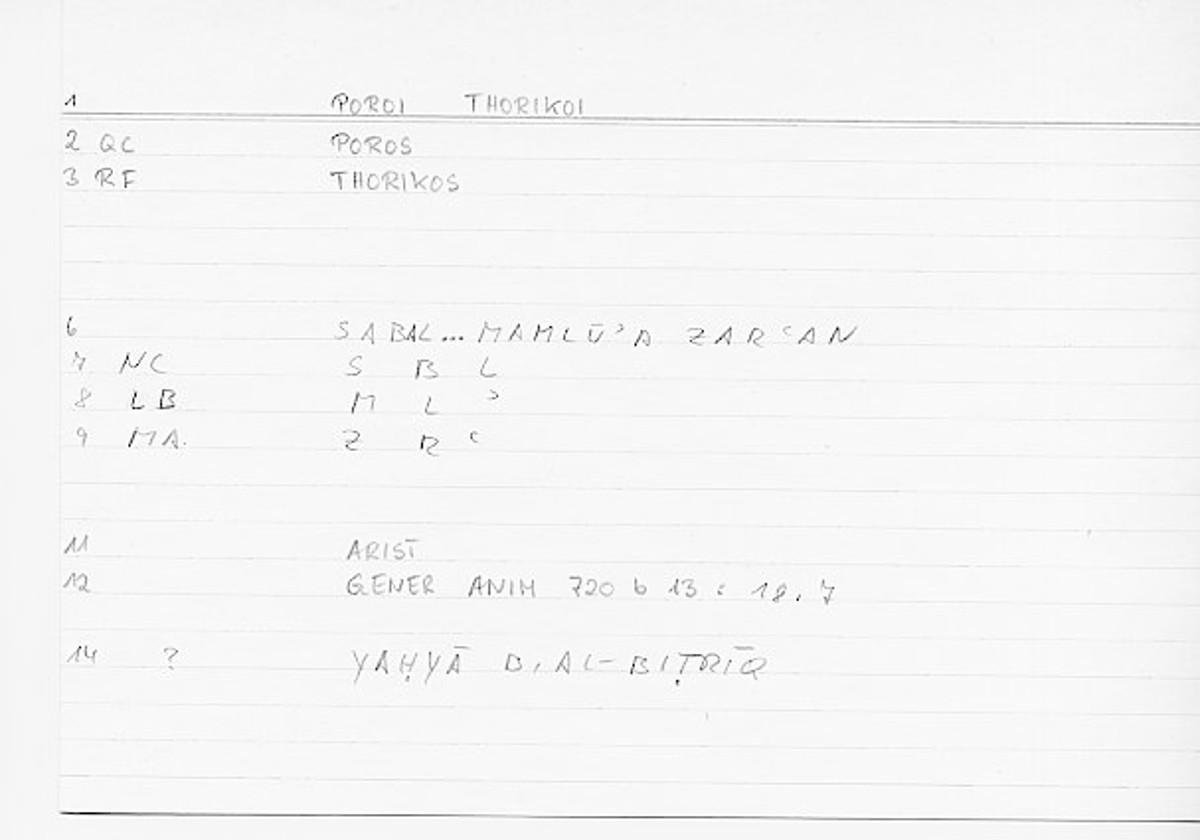 1 POROI THORIKOI
2 QC POROS
3 RF THORIKOS
6 SABAL... MAMLŪʾA ZARʿAN
7 NC S B L
8 LB M L ʾ
9 MA. Z R ʿ
11 ARIST
12 GENER ANIM 720 b 13 : 18.7
14 ? YAḤYĀ B. AL-BIṬRĪQ